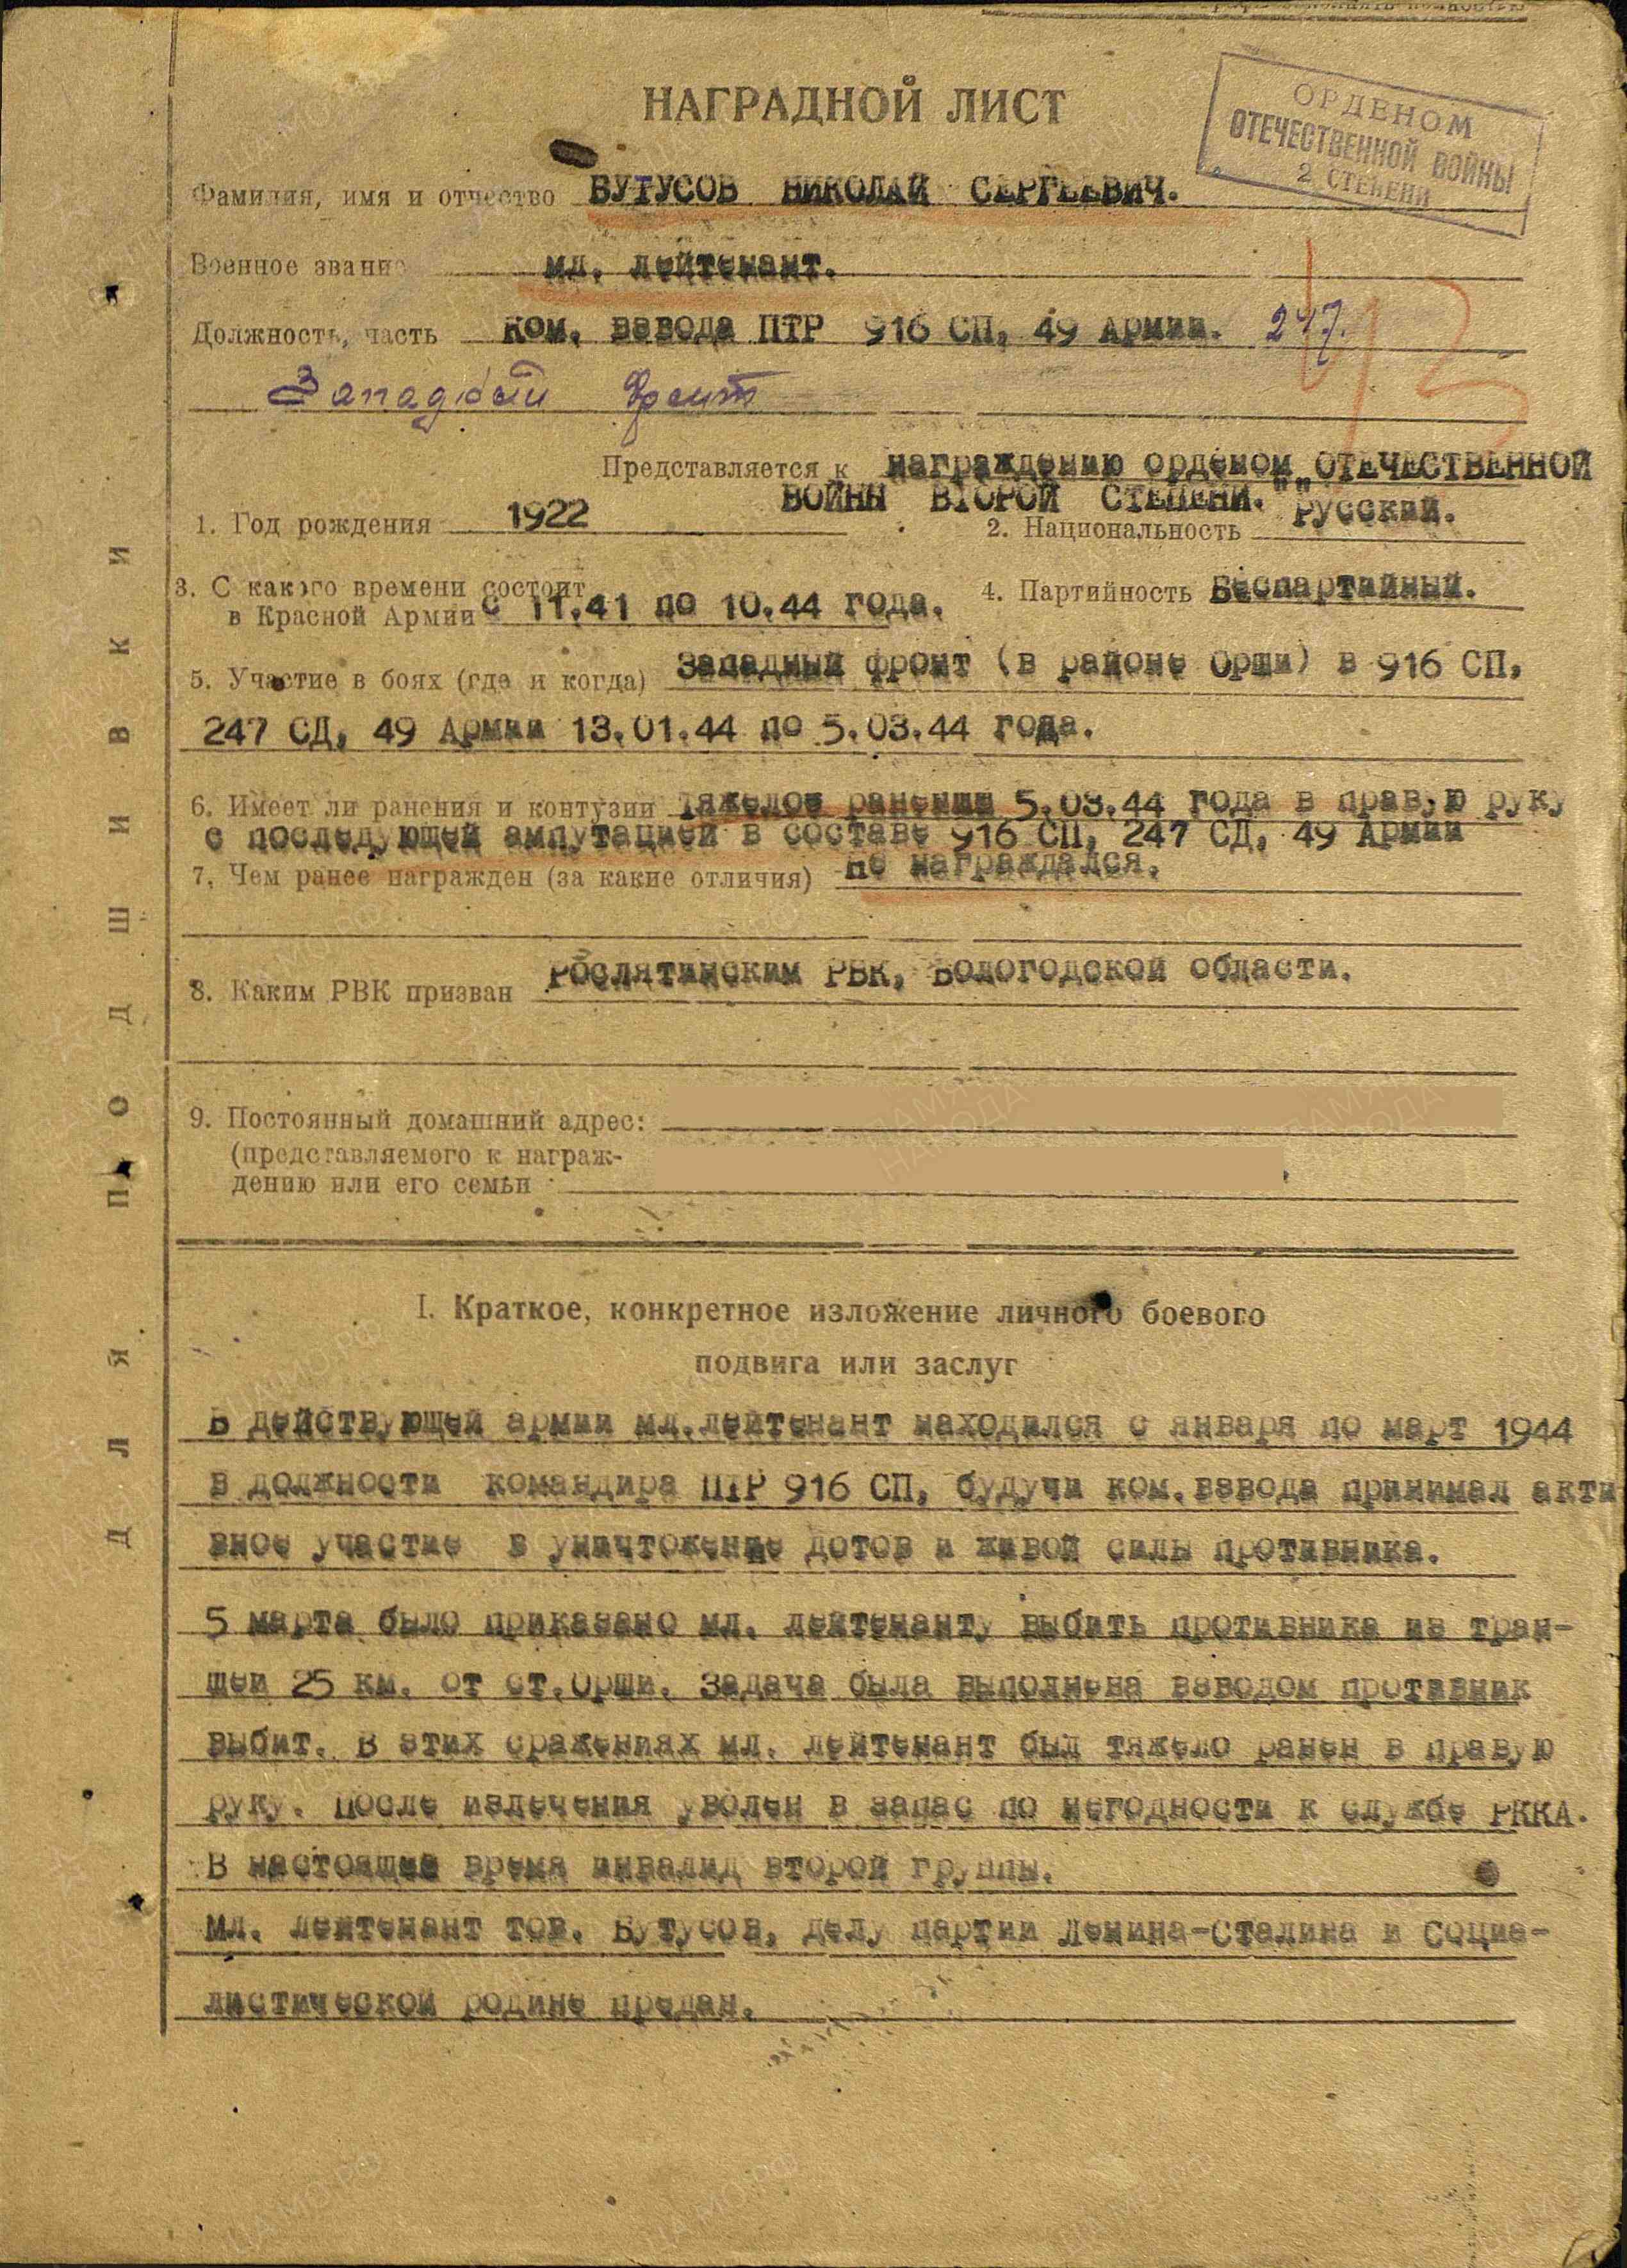 НАГРАДНОЙ ЛИСТ
ОРДЕНОМ
ОТЕЧЕСТВЕННОЙ ВОЙНЫ
2 СТЕПЕНИ
Фамилия, имя и отчество БУТУСОВ НИКОЛАЙ СЕРГЕЕВИЧ.
Военное звание мл. лейтенант.
Должность, часть Ком. взвода ПТР 916 СП, 49 Армии. 247.
Западный Фронт
Представляется к награждению орденом „ОТЕЧЕСТВЕННОЙ
ВОЙНЫ ВТОРОЙ СТЕПЕНИ."
1. Год рождения 1922 2. Национальность Русский.
3. С какого времени состоит
в Красной Армии с 11.41 по 10.44 года. 4. Партийность Беспартийный.
5. Участие в боях (где и когда) Западный фронт (в районе Орши) в 916 СП,
247 СД, 49 Армии 13.01.44 по 5.03.44 года.
6. Имеет ли ранения и контузии тяжелое ранение 5.03.44 года в правую руку
с последующей ампутацией в составе 916 СП, 247 СД, 49 Армии
7. Чем ранее награжден (за какие отличия) не награждался.
8. Каким РВК призван Рослятинским РВК, Вологодской области.
9. Постоянный домашний адрес:
(представляемого к награж-
дению или его семьи
I. Краткое, конкретное изложение личного боевого
подвига или заслуг
В действующей армии мл.лейтенант находился с января по март 1944
в должности командира ПТР 916 СП, будучи ком.взвода принимал акти
вное участие в уничтожение дотов и живой силы противника.
5 марта было приказано мл. лейтенанту выбить противника из тран-
шеи 25 км. от ст.Орши. Задача была выполнена взводом противник
выбит. В этих сражениях мл. лейтенант был тяжело ранен в правую
руку. После излечения уволен в запас по негодности к службе РККА.
В настоящее время инвалид второй группы.
Мл. лейтенант тов. Бутусов, делу партии Ленина-Сталина и Социа-
листической родине предан.
ДЛЯ ПОДШИВКИ